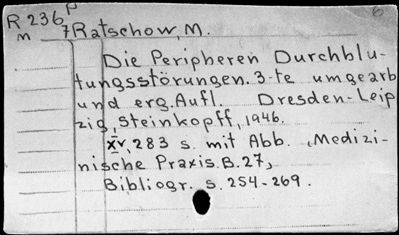 R 236 P 6
m 7 Ratschow, M.
Die Peripheren Durchblu-
tungsstörungen. 3-te umgearb
und erg. Aufl. Dresden-Leip
zig, Steinkopff, 1946.
XV, 283 s. mit Abb. „Medizi-
nische Praxis. B. 27„
Bibliogr. s. 254-269.